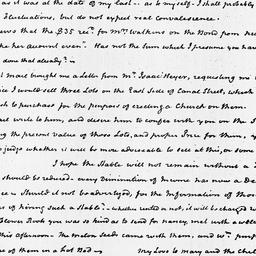 as it was at the date of my last - as to myself - I shall probably
Fluctuations, but do not expect real Convalescence.
news that the £35 rec.d for Mrs. Watkins on the Nord from
her account even. Has not the sum which I presume you have
done that already? -
mail brought me a letter from Mr. Isaac Heyer, requesting me
I would sell three Lots on the East Side of Canal Street, which
wish to purchase for the purpose of erecting a Church on them.
will write to him, and desire him to confer with you on the
the present value of those Lots, and proper Price for them,
to judge whether it will be more adviseable to sell at this, or some
I hope the Stable will not remain without a
should be reduced - every Diminution of Income has now a
Should it not be advertized, for the Information of those
of hiring such a Stable? - whether rented or not, it will be charged
Blower Book you was so kind as to send for Nancy, met with a
this afternoon - The melon Seeds came with them, and Wm.
of them in a hot Bed - My Love to Mary and the